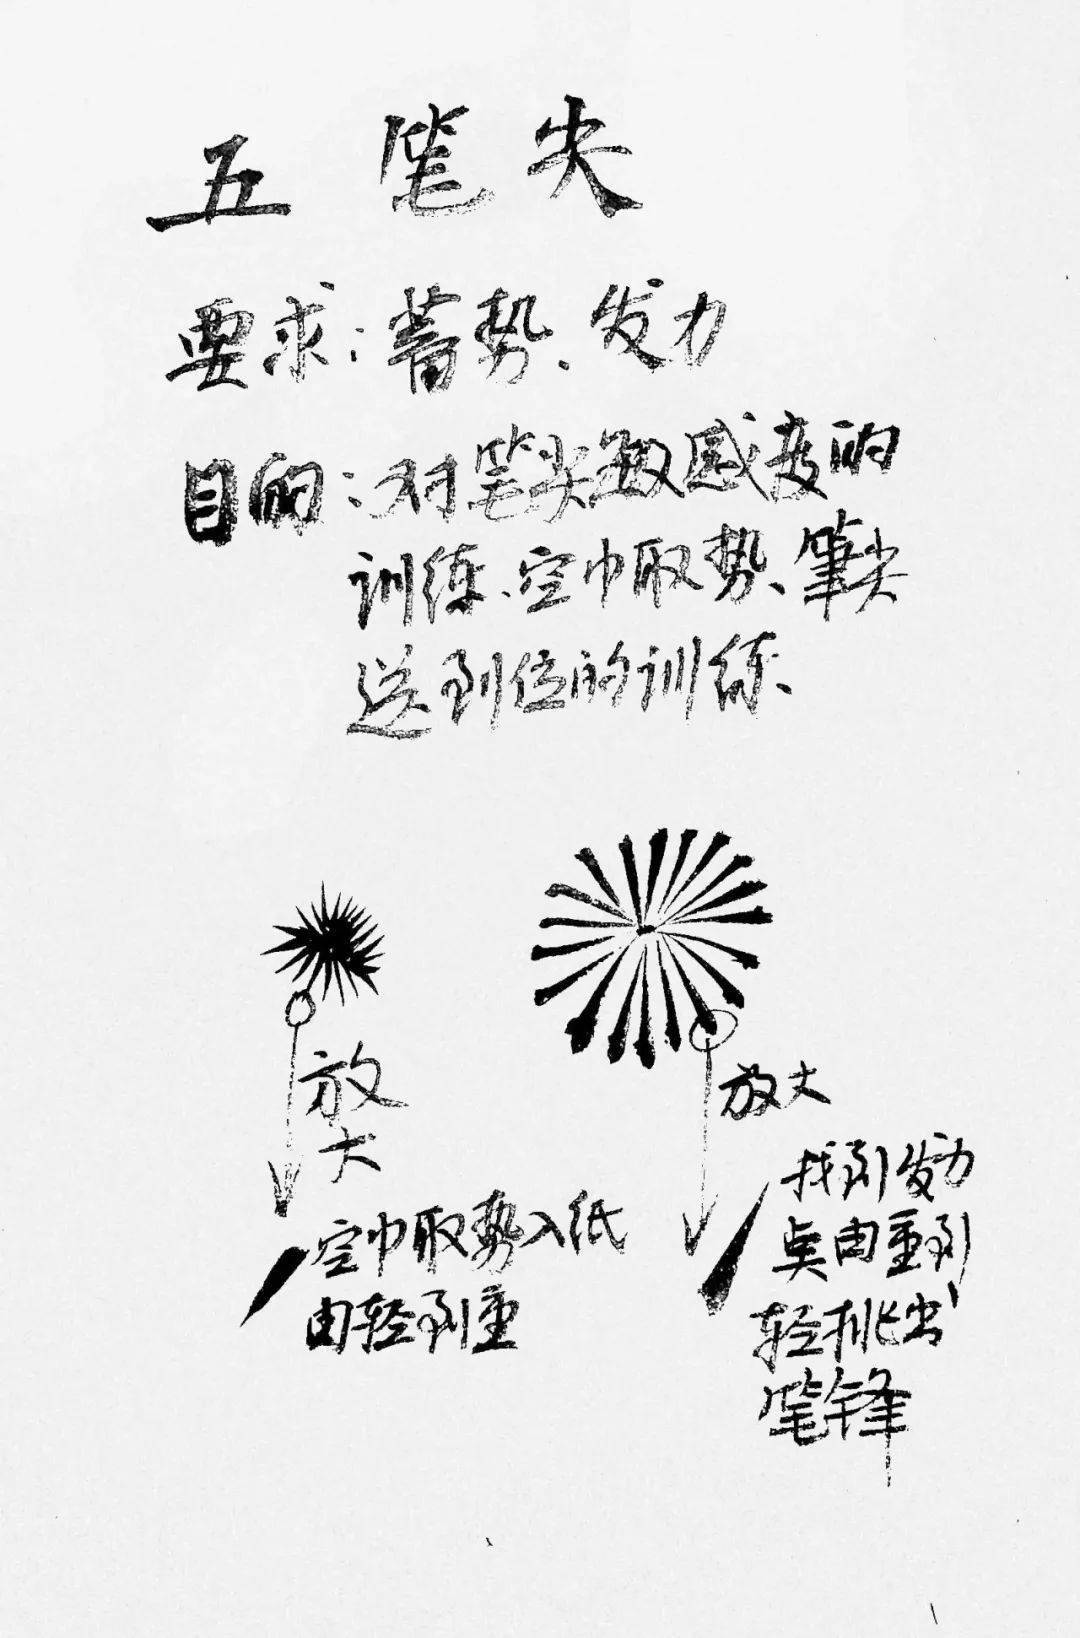 五 笔尖
要求：蓄势、发力
目的：对笔尖敏感度的
训练、空中取势、筆尖
送到位的训练、
放大
空中取势入纸
由轻到重
放大
找到发力
点由重到
轻挑出
笔锋